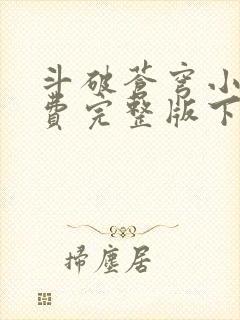 斗破苍穹小
费完整版下
掃塵居